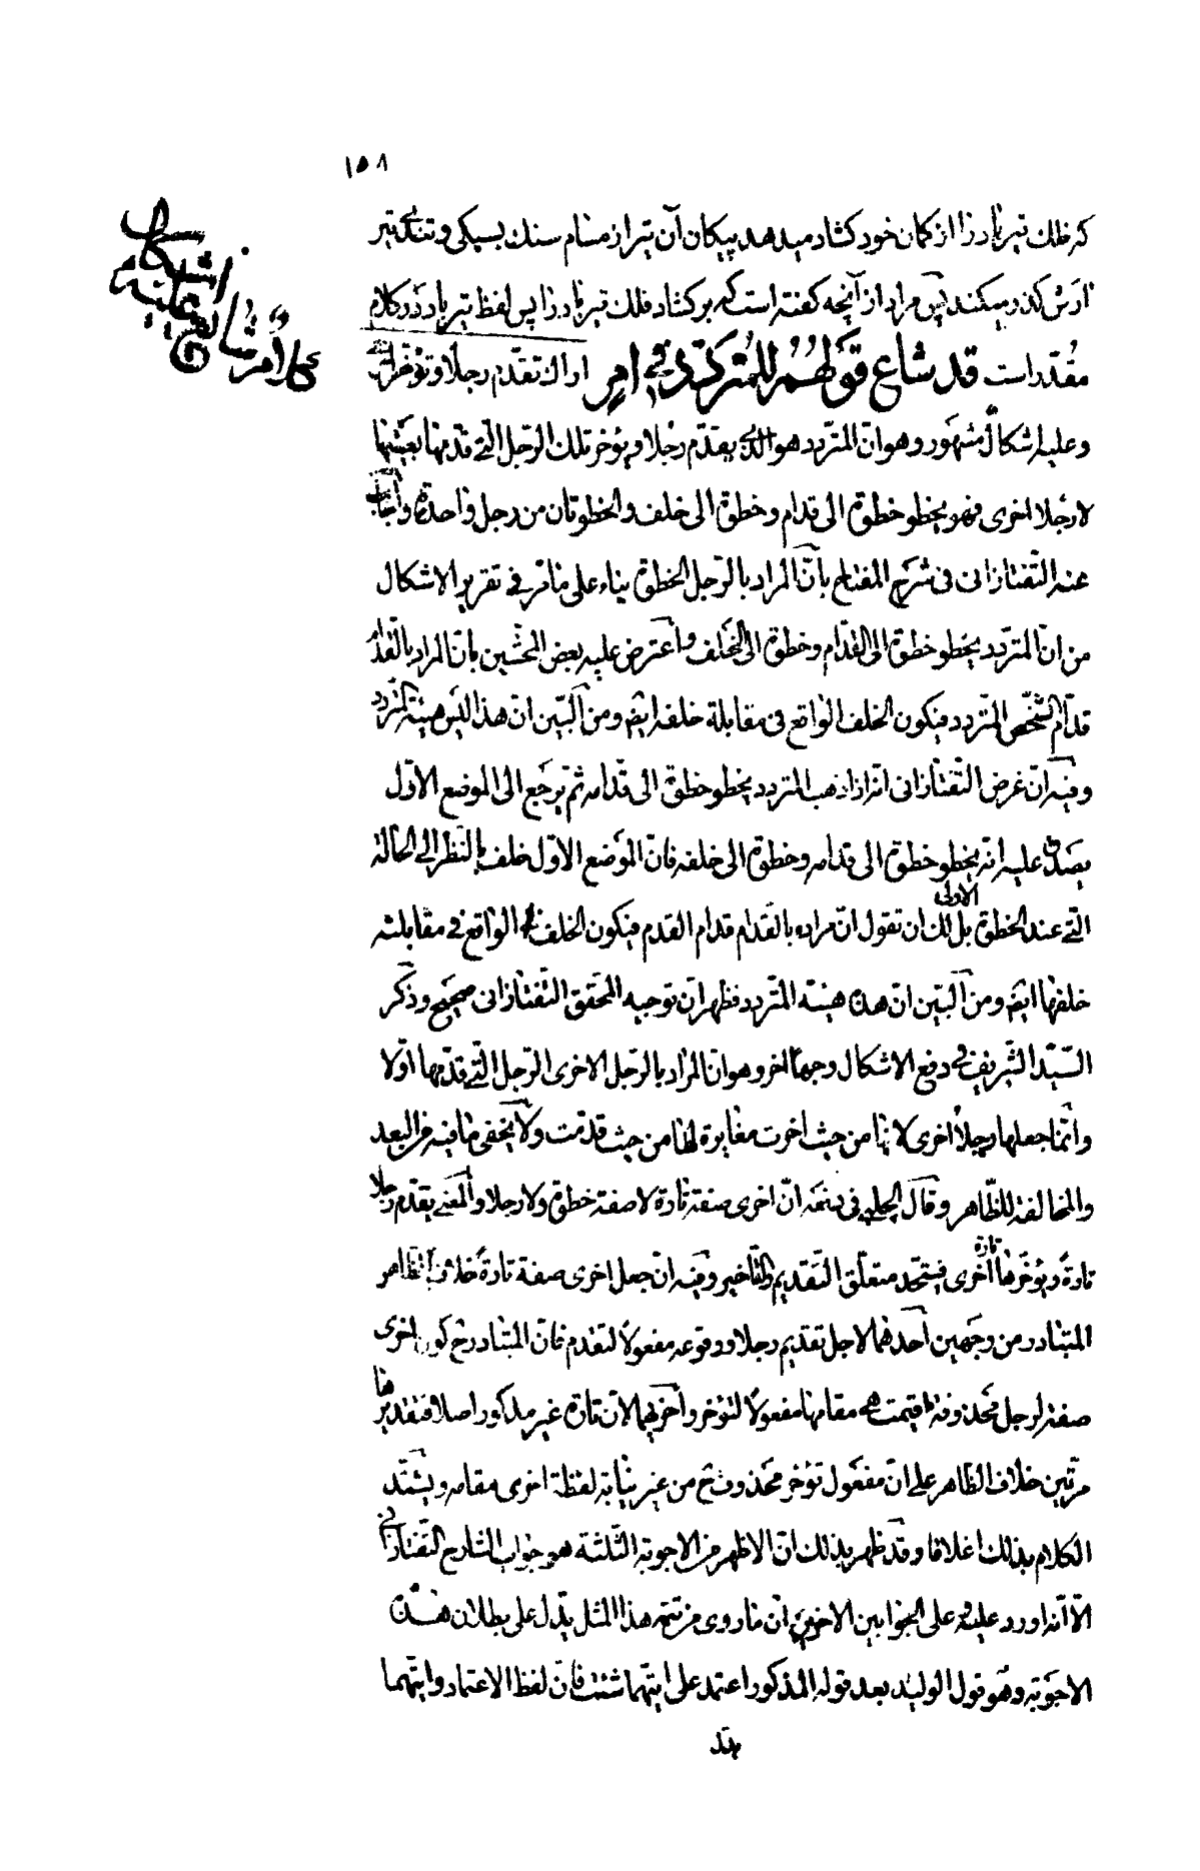 ١٥٨
كه فلك تير باد زا از كمان خود كشاد ميدهد پيكان آن تير از مسام سنك بسبكى وتندى تير
ارش كذر ميكند پس مراد از آنچه كفته است كه بر كشاد فلك تير باد زا پس لفظ تير باد در كلام
مقدر است قد شاع قولهم للمتردد في امر اراك تقدم رجلا وتؤخر اخرى
وعليه اشكال مشهور وهو ان المتردد هو الذي يقدم رجلا ويؤخر تلك الرجل التي قدمها بعينها
لا رجلا اخرى فهو يخطو خطوة الى قدام وخطوة الى خلف والخطوتان من رجل واحدة واجاب
عنه التفتازانى فى شرح المفتاح بان المراد بالرجل الخطوة بناء على ما مر في تقرير الاشكال
من ان المتردد يخطو خطوة الى القدام وخطوة الى الخلف واعترض عليه بعض المحشين بان المراد بالقدام
قدام الشخص المتردد فيكون الخلف الواقع فى مقابلة خلفه ايضا ومن البين ان هذا ليس هيئة المتردد
وفيه ان غرض التفتازانى انه اذا ذهب المتردد يخطو خطوة الى قدامه ثم يرجع الى الموضع الاول
يصدق عليه انه يخطو خطوة الى قدامه وخطوة الى خلفه فان الموضع الاول خلف بالنظر الى الحالة
التي عند الخطوة الاولى بل لك ان تقول ان مراده بالقدام قدام القدم فيكون الخلف الواقع في مقابلته
خلفها ايضا ومن البين ان هذه هيئة المتردد فظهر ان توجيه المحقق التفتازانى صحيح وذكر
السيد الشريف في دفع الاشكال وجها اخر وهو ان المراد بالرجل الاخرى الرجل التي قدمها اولا
وانما جعلها رجلا اخرى لانها من حيث اخرت مغايرة لها من حيث قدمت ولا يخفى ما فيه من البعد
والمخالفة للظاهر وقال الچلبي فى ان اخرى صفة تارة لا صفة خطوة ولا رجلا والمعنى يقدم رجلا
تارة ويؤخرها تارة اخرى فيتحد متعلق التقديم والتأخير وفيه ان جعل اخرى صفة تارة خلاف الظاهر
المتبادر من وجهين احدهما لاجل تقديم رجلا ووقوعه مفعولا لتقدم فان المتبادر ح كون اخرى
صفة لرجل محذوفة اقيمت هي مقامها مفعولا لتؤخر وآخرهما لان تارة غير مذكور اصلا فتقديرها
مرتين خلاف الظاهر على ان مفعول تؤخر محذوف ح من غير نيابة لفظة اخرى مقامه ويشتد
الكلام بذلك اغلاقا وقد ظهر بذلك ان الاظهر من الاجوبة الثلثة هو جواب الشارح التفتازاني
الا انه اورد عليه وعلى الجوابين الاخيرين ان ما روى من تتمة هذا المثل يدل على بطلان هذه
الاجوبة وهو قول الوليد بعد قوله المذكور اعتمد على ايتهما شئت فان لفظ الاعتماد وايتهما
يدل